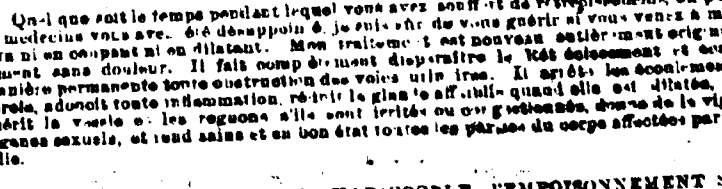 Quel que soit le temps pendant lequel vous avez souffert de
medecins vous avez été désappointé, je suis sûr de vous guérir si vous venez à m
ni en coupant ni en dilatant. Mon traitement est nouveau entièrement origin
ment sans douleur. Il fait complètement disparaître le Rétrécissement et
anière permanente toute obstruction des voies urinaires. Il arrête les écouleme
adoucit toute inflammation, rétrécit la glande affaiblie quand elle est dilatée,
érit la vessie et les rognons s'ils sont irrités ou congestionnés, donne de la vi
ganes sexuels, et rend sains et en bon état toutes les parties du corps affectées par
die.
L'EMPOISONNEMENT